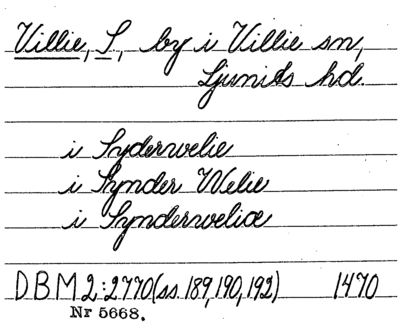 Villie, S, by i Villie sn,
Ljunits hd.
i Syderwelie
i Synder Welie
i Synderweliæ
DBM 2:2770 (ss. 189, 190, 192) 1470
Nr 5668.